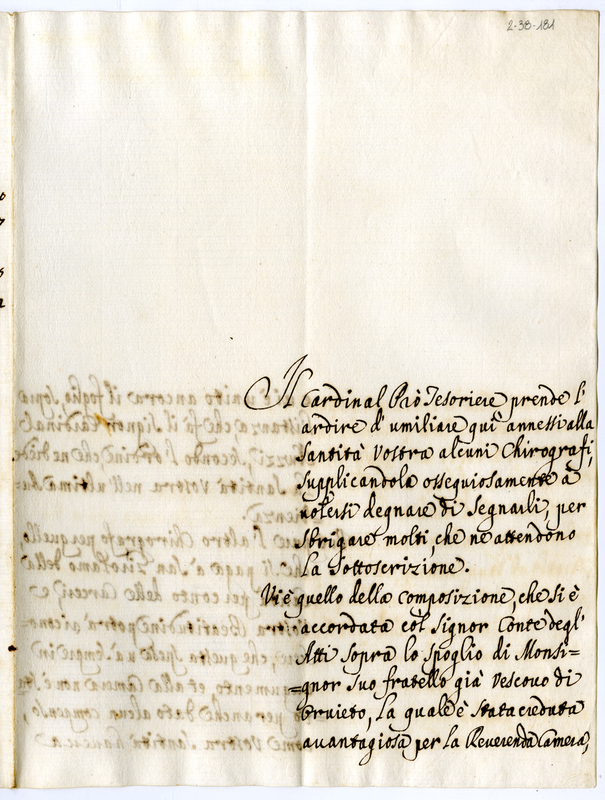 2-38-181
Il Cardinal Prò Tesoriere prende l'
ardire d'umiliare quì annessi alla
Santità Vostra alcuni Chirografi,
supplicandola ossequiosamente à
volersi degnare di segnarli, per
sbrigare molti, che ne attendono
la sottoscrizione.
Vi è quello della composizione, che si è
accordata còl Signor Conte degl'
Atti sopra lo spoglio di Monsi=
=gnor suo fratello già Vescovo di
Orvieto, la quale è stata creduta
avantagiosa per la Reverenda Camera,